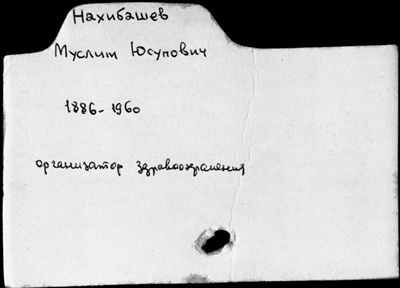 Нахибашев
Муслим Юсупович
1886-1960
организатор здравоохранения